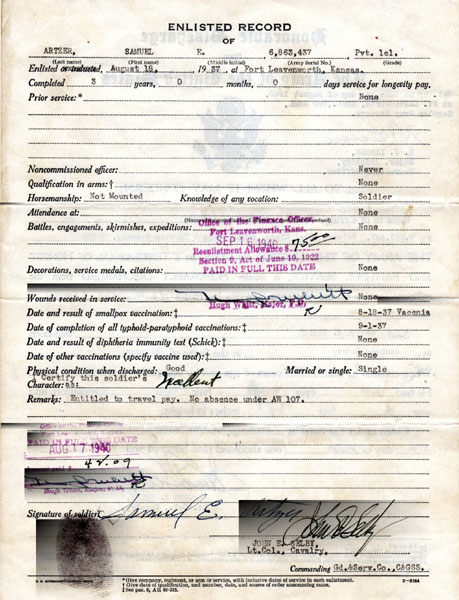 ENLISTED RECORD
OF
ARTZER, SAMUEL E. 6,863,437 Pvt. 1cl.
(Last name) (First name) (Middle initial) (Army Serial No.) (Grade)
Enlisted or inducted, August 18, 1937, at Fort Leavenworth, Kansas.
Completed 3 years, 0 months, 0 days service for longevity pay.
Prior service:* None
Noncommissioned officer: Never
Qualification in arms:† None
Horsemanship: Not Mounted Knowledge of any vocation: Soldier
Attendance at: None
Office of the Finance Officer,
Battles, engagements, skirmishes, expeditions: None
Fort Leavenworth, Kans.
SEP 16 1940
Reenlistment Allowance $ 75.00
Section 9, Act of June 10, 1922
Decorations, service medals, citations: None
PAID IN FULL THIS DATE
Wounds received in service: None
Hugh Waitt, Major, F.D.
Date and result of smallpox vaccination:‡ 8-18-37 Vaccnia
Date of completion of all typhoid-paratyphoid vaccinations:‡ 9-1-37
Date and result of diphtheria immunity test (Schick):‡ None
Date of other vaccinations (specify vaccine used):‡ None
Physical condition when discharged: Good Married or single: Single
I Certify this soldier's
Character as: Excellent
Remarks: Entitled to travel pay. No absence under AW 107.
PAID IN FULL THIS DATE
AUG 17 1940
42.09
Signature of soldier: Samuel E. Artzer
John E. Selby
JOHN E. SELBY
Lt.Col., Cavalry.
Commanding Gd.&Serv.Co., C&GSS.
*Give company, regiment, or arm or service, with inclusive dates of service in each enlistment.
†Give date of qualification, and number, date, and source of order announcing same.
‡See par. 6, AR 40-215.